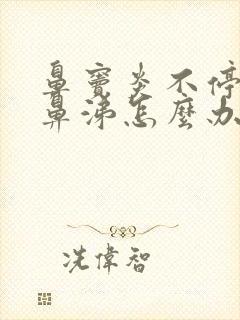 鼻竇炎不停
鼻涕怎麼办
冼偉智